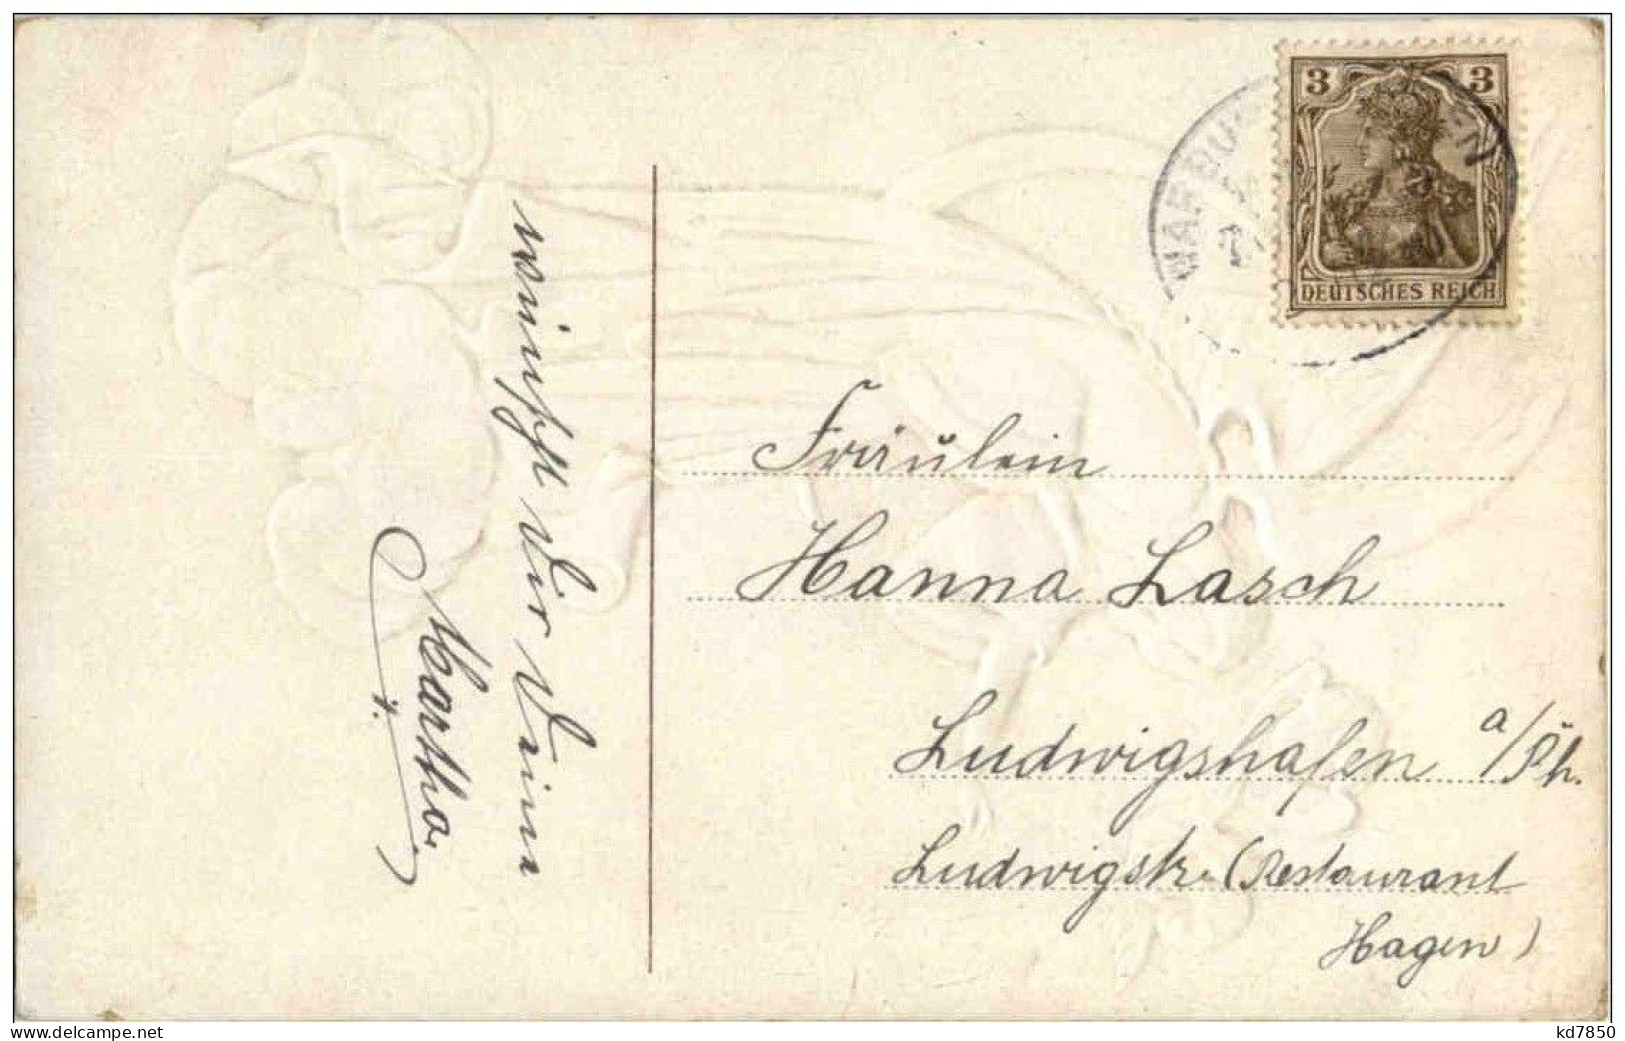 3 3
DEUTSCHES REICH
wünscht Dir Deine
Martha.
Fräulein
Hanna Lasch
Ludwigshafen a/Rh.
Ludwigstr. (Restaurant
Hagen)
www.delcampe.net
kd7850